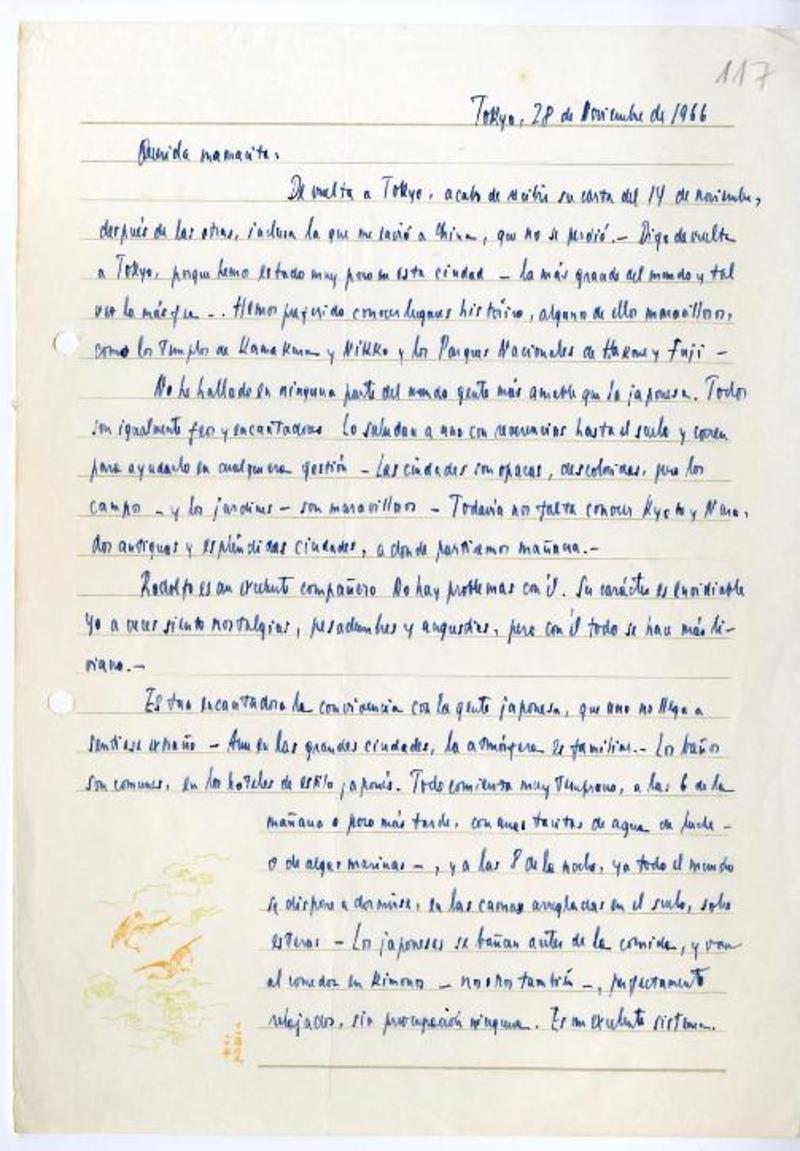 117
Tokyo, 28 de Noviembre de 1966
Querida mamacita:
De vuelta a Tokyo, acabo de recibir su carta del 14 de noviembre,
después de las otras, inclusa la que me envió a China, que no se perdió.— Digo de vuelta
a Tokyo, porque hemos estado muy poco en esta ciudad — la más grande del mundo y tal
vez la más fea —. Hemos preferido conocer lugares históricos, algunos de ellos maravillosos,
como los Templos de Kamakura y Nikko y los Parques Nacionales de Hakone y Fuji —
No he hallado en ninguna parte del mundo gente más amable que la japonesa. Todos
son igualmente feos y encantadores Lo saludan a uno con reverencias hasta el suelo y corren
para ayudarlo en cualquiera gestión — Las ciudades son opacas, descoloridas, pero los
campos — y los jardines — son maravillosos — Todavía nos falta conocer Kyoto y Nara,
dos antiguas y espléndidas ciudades, a donde partiremos mañana.—
Rodolfo es un excelente compañero No hay problemas con él. Su carácter es envidiable
Yo a veces siento nostalgias, pesadumbres y angustias, pero con él todo se hace más li-
viano.—
Es tan encantadora la convivencia con la gente japonesa, que uno no llega a
sentirse extraño — Aun en las grandes ciudades, la atmósfera es familiar.— Los baños
son comunes, en los hoteles de estilo japonés. Todo comienza muy temprano, a las 6 de la
mañana o poco más tarde, con unas tacitas de agua de
o de algas marinas —, y a las 8 de la noche, ya todo el mundo
se dispone a dormirse, en las camas arregladas en el suelo, sobre
esteras — Los japoneses se bañan antes de la comida, y van
al comedor en kimonos — nosotros también —, perfectamente
relajados, sin preocupación ninguna. Es un excelente sistema.